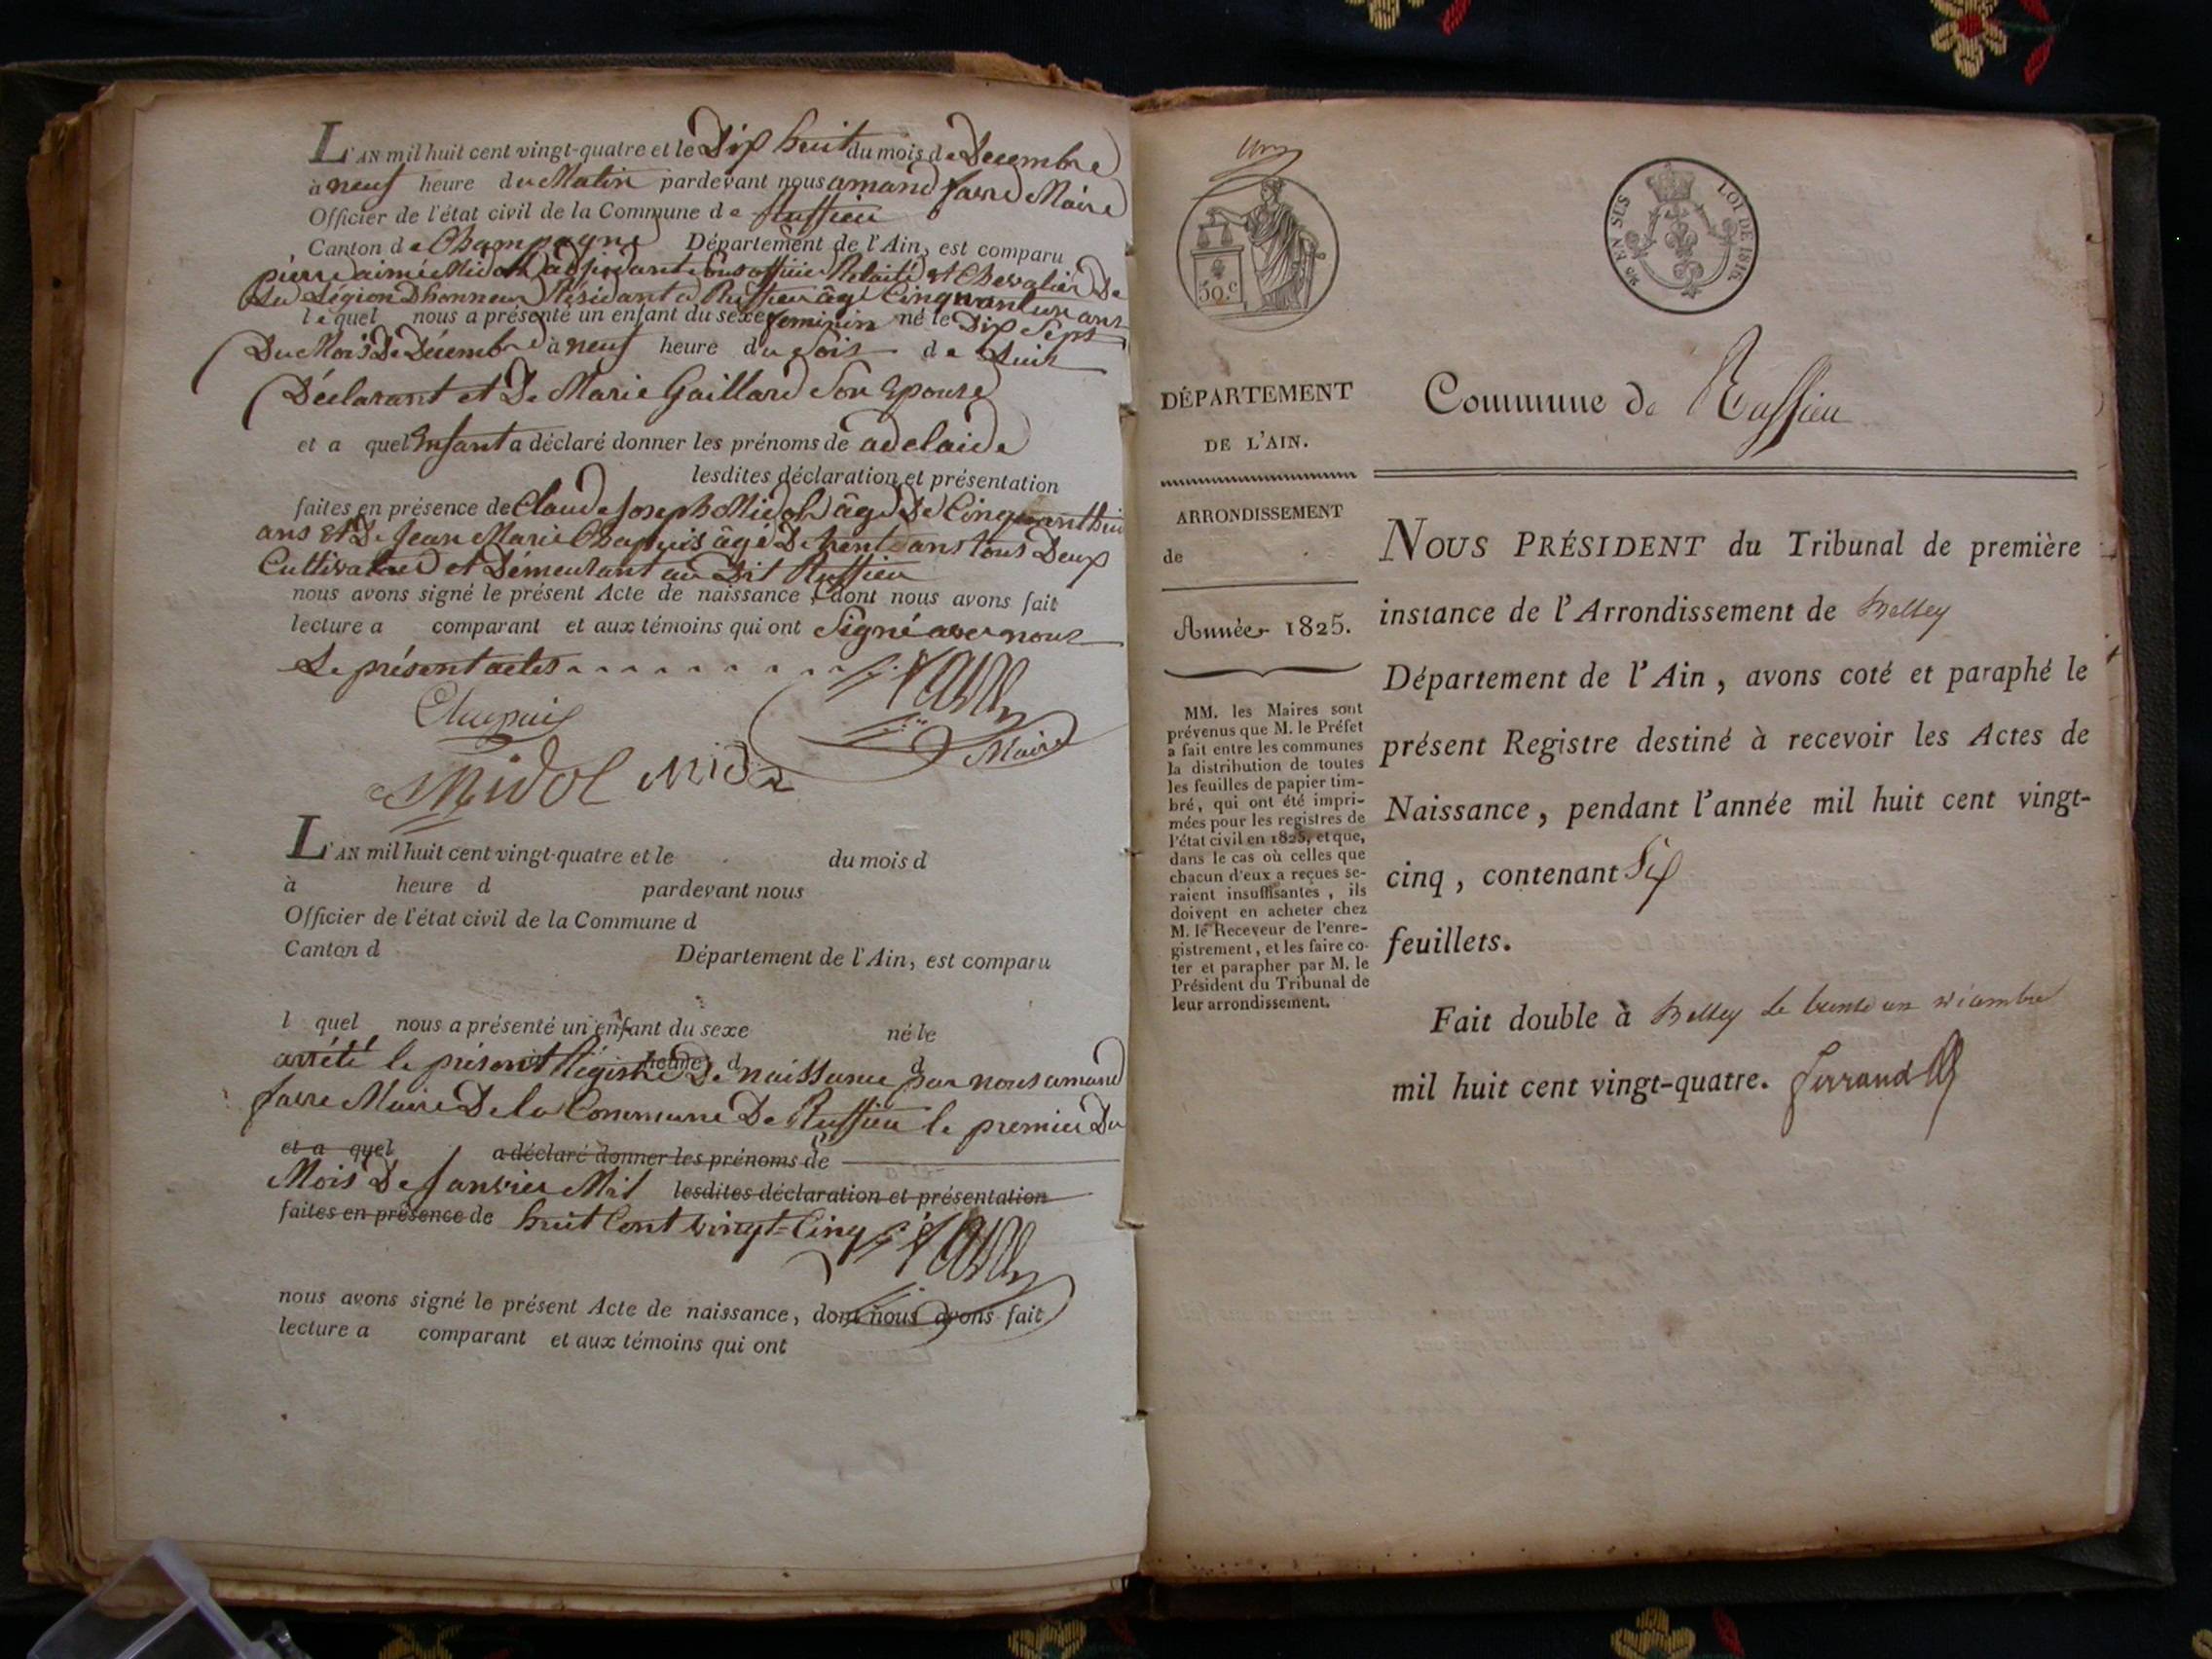 L'AN mil huit cent vingt-quatre et le Dix huit du mois de Decembre
à neuf heure du Matin pardevant nous amand favre Maire
Officier de l'état civil de la Commune de Ruffieu
Canton de Champagne Département de l'Ain, est comparu
pierre aimé Midol adjudant Sous officier Retraité et Chevalier De
La Légion Dhonneur Résidant a Ruffieu âgé Cinquante un ans
lequel nous a présenté un enfant du sexe feminin né le Dix Sept
Du Mois De Décembre à neuf heure du Soir de Luir
Déclarant et De Marie Gaillard Son Epouse
et a quel Enfant a déclaré donner les prénoms de adelaide
lesdites déclaration et présentation
faites en présence de Claude Joseph Midol âgé De Cinquant huit
ans Et De Jean Marie Chapuis âgé De trente ans tous Deux
Cultivateur et Démeurant au Dit Ruffieu
nous avons signé le présent Acte de naissance, dont nous avons fait
lecture a comparant et aux témoins qui ont Signé avec nous
Le présent actes
Chapuis favre
Maire
Midol Midol
L'AN mil huit cent vingt-quatre et le du mois d
à heure d pardevant nous
Officier de l'état civil de la Commune d
Canton d Département de l'Ain, est comparu
l quel nous a présenté un enfant du sexe né le
heure d d
arrêté le présent Régistre De naissance par nous amand
favre Maire De la Commune De Ruffieu le premier Du
et a quel a déclaré donner les prénoms de
Mois De Janvier Mil lesdites déclaration et présentation
faites en présence de huit Cent vingt-Cinq favre
nous avons signé le présent Acte de naissance, dont nous avons fait
lecture a comparant et aux témoins qui ont
un
50.c
EN SUS LOI DE 1816.
DÉPARTEMENT
DE L'AIN.
ARRONDISSEMENT
de
Année 1825.
MM. les Maires sont
prévenus que M. le Préfet
a fait entre les communes
la distribution de toutes
les feuilles de papier tim-
bré, qui ont été impri-
mées pour les registres de
l'état civil en 1825, et que,
dans le cas où celles que
chacun d'eux a reçues se-
raient insuffisantes, ils
doivent en acheter chez
M. le Receveur de l'enre-
gistrement, et les faire co-
ter et parapher par M. le
Président du Tribunal de
leur arrondissement.
Commune de Ruffieu
NOUS PRÉSIDENT du Tribunal de première
instance de l'Arrondissement de Belley
Département de l'Ain, avons coté et paraphé le
présent Registre destiné à recevoir les Actes de
Naissance, pendant l'année mil huit cent vingt-
cinq, contenant Six
feuillets.
Fait double à Belley le trente un décembre
mil huit cent vingt-quatre. Ferrand